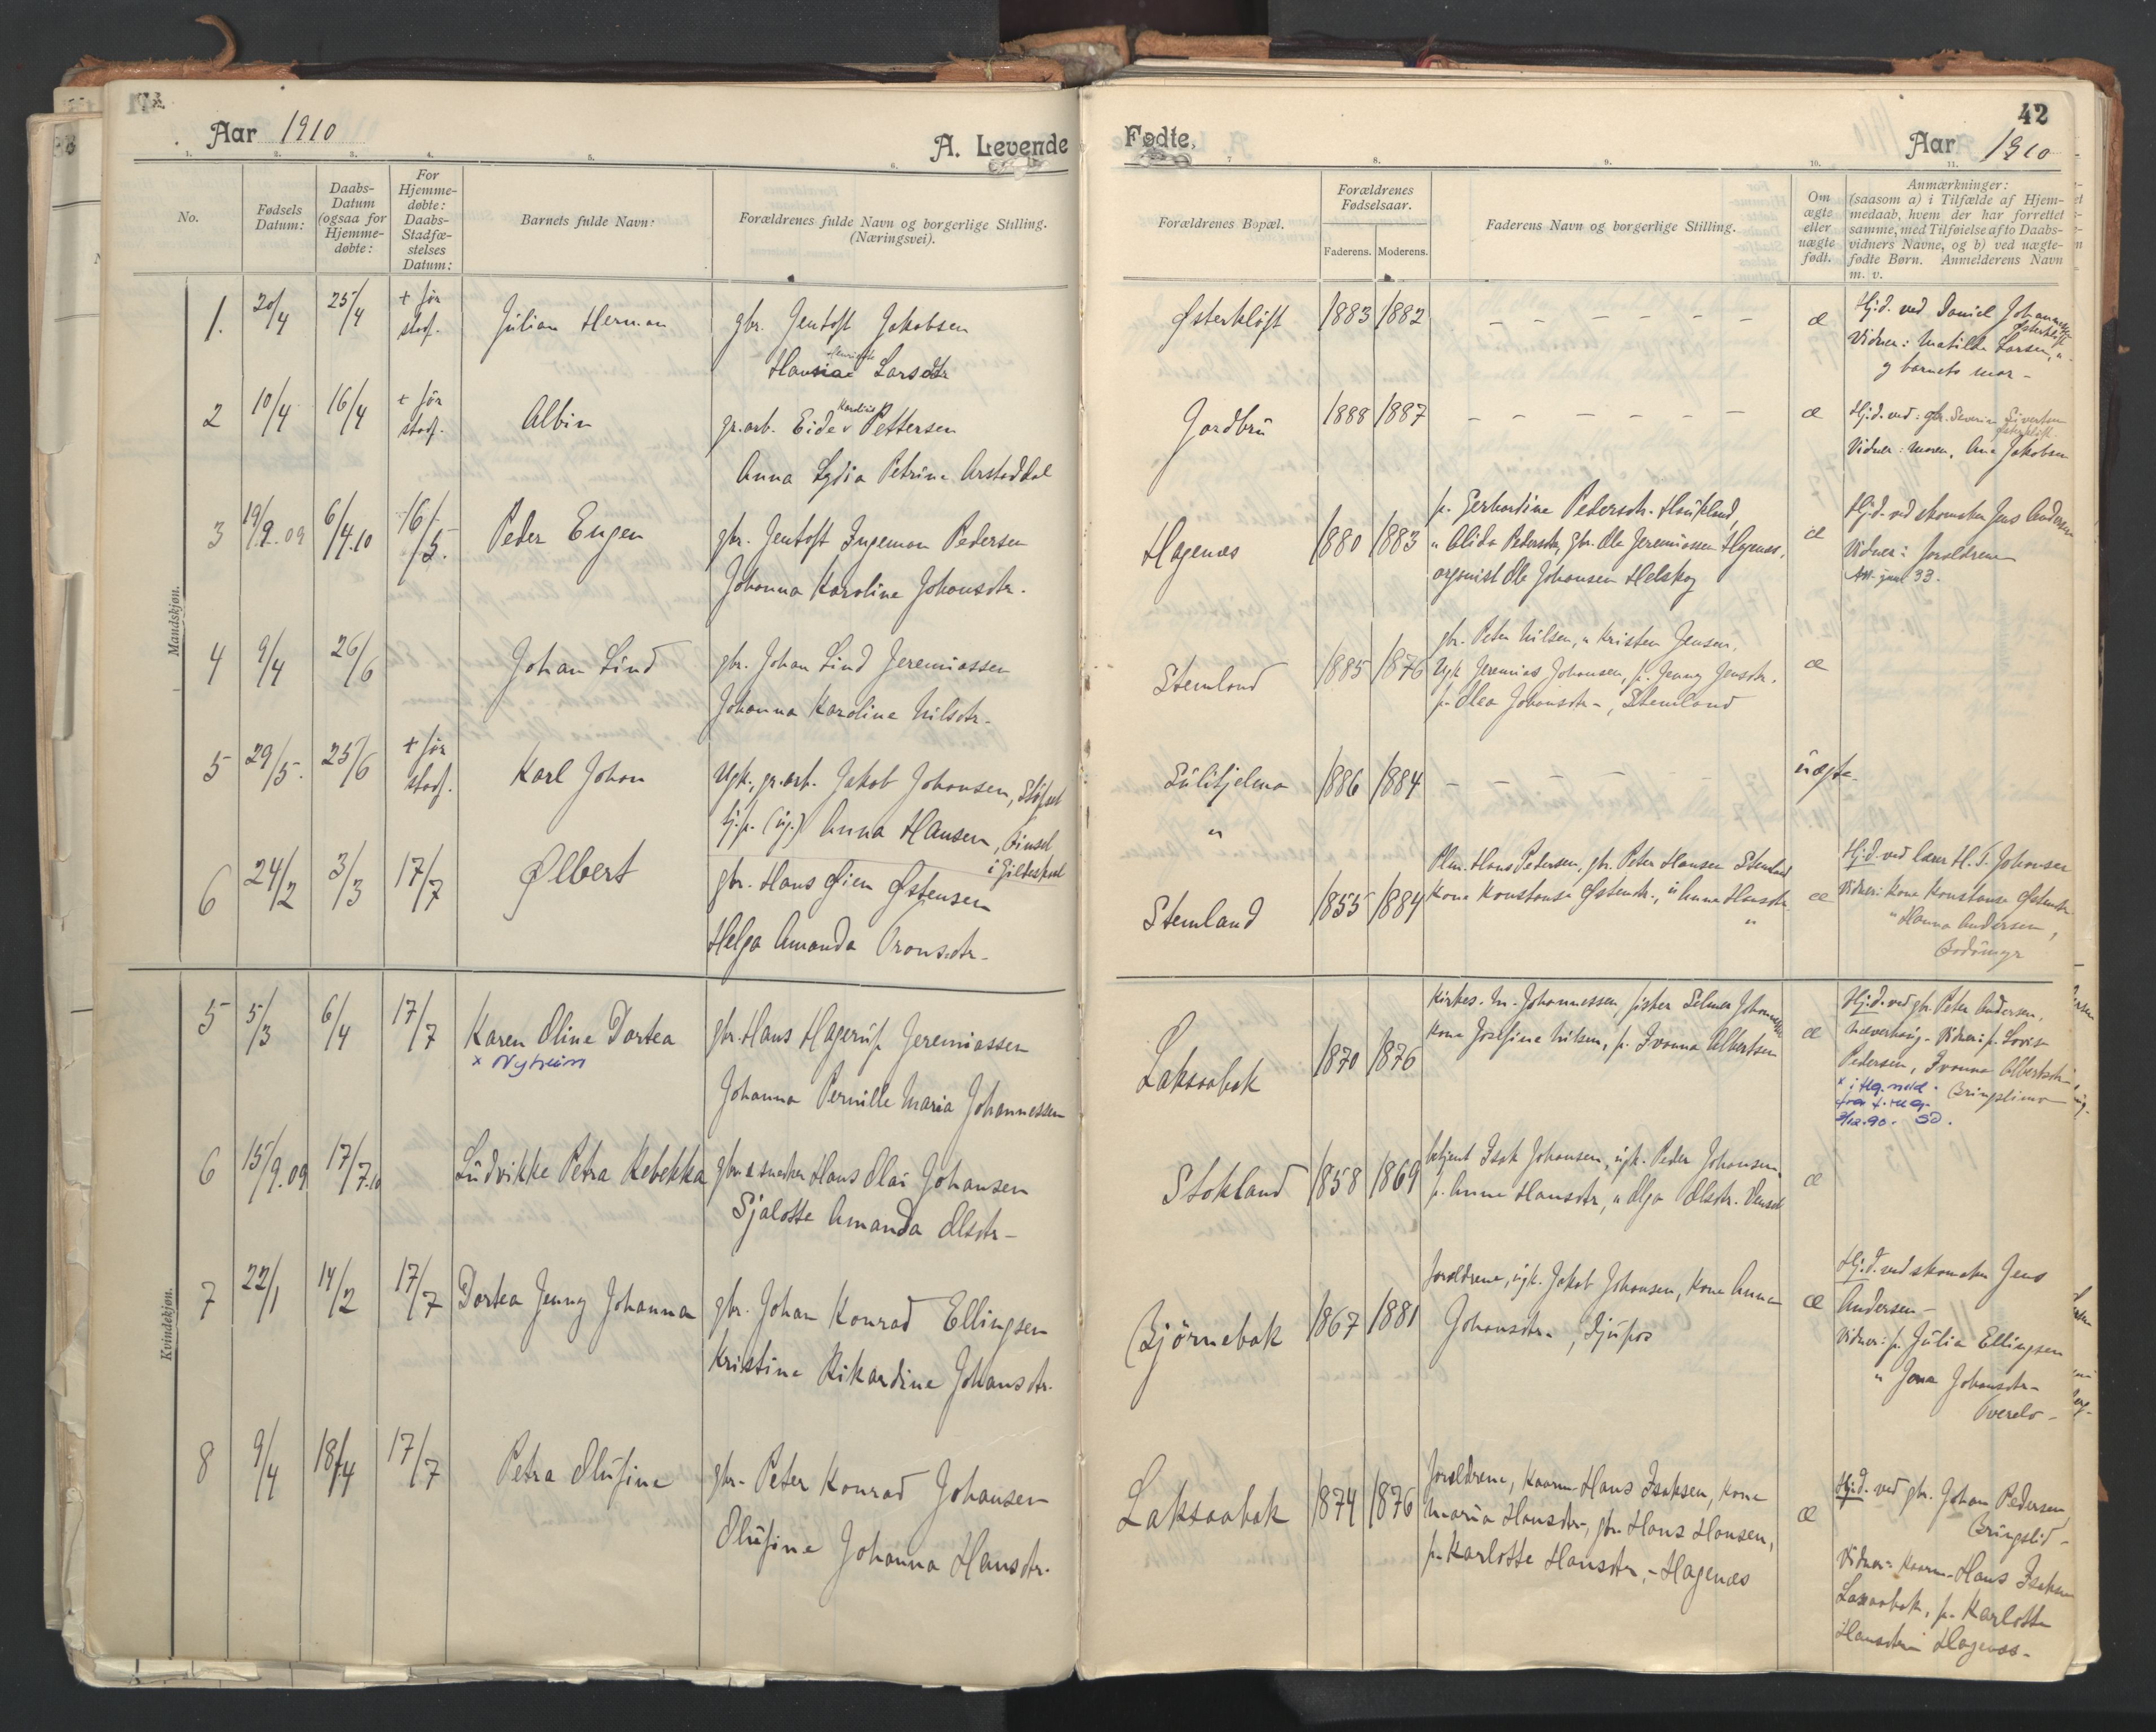 Aar 1910
A. Levende
1. 2. 3. 4. 5. 6.
No.
Fødsels Datum:
Daabs-Datum (ogsaa for Hjemme-døbte:
For Hjemme-døbte: Daabs-Stadfæ-stelses Datum:
Barnets fulde Navn:
Forældrenes fulde Navn og borgerlige Stilling. (Næringsvei).
Mandskjøn.
1. 20/4 25/4 + før stadf. Julian Herman gbr. Jentoft Jakobsen
Larsdtr
2 10/4 16/4 + før stadf. Albin gr.arb. Eidev Pettersen
Anna Lydia Petrine Arstaddal
3 19/9.09 6/4.10 16/5. Peder Eugen gbr. Jentoft Ingeman Pedersen
Johanna Karoline Johansdtr.
4 9/4 26/6 Johan Lind gbr. Johan Lind Jeremiassen
Johanna Karoline Nilsdtr.
5 29/5. 25/6 + før stadf. Karl Johan Ugk. gr.arb. Jakob Johansen,
tj.p. (ug.) Anna Hansen,
i Gildeskaal
6 24/2 3/3 17/7 Ølbert gbr. Hans Øien Østensen
Helga Amanda
Kvindekjøn.
5 5/3 6/4 17/7 Karen Oline Dortea gbr. Hans Hagerup Jeremiassen
x Nyheim
Johanna Pernille Maria Johannessen
6 15/9.09 17/7.10 Ludvikke Petra Rebekka gbr. & snekker Hans Olai Johansen
Sjalotte Amanda Olsdtr-
7 22/1 14/2 17/7 Dortea Jenny Johanna gbr. Johan Konrad Ellingsen
Kristine Rikardine Johansdtr.
8 9/4 18/4 17/7 Petra Olufine gbr. Peter Konrad Johansen
Olufine Johanna Hansdtr.
42
Fødte,
Aar 1910
7 8. 9. 10. 11.
Forældrenes Bopæl.
Forældrenes Fødselsaar.
Faderens. Moderens.
Faderens Navn og borgerlige Stilling.
Om ægte eller uægte født.
Anmærkninger:
(saasom a) i Tilfælde af Hjem-
medaab, hvem der har forrettet
samme, med Tilføielse af to Daabs-
vidners Navne, og b) ved uægte-
fødte Børn. Anmelderens Navn
m. v.
Østerkløft 1883 1882 – – – – – – – æ Hj.d. ved Daniel Johannessen
Østerkløft
Vidner: Matilde Larsen, "
og barnets mor –
Jordbru 1888 1887 – – – – – – æ Hj.d. ved: gbr. Severin Sivertsen
Østerkløft.
Vidner: moren, Ane Jakobsen
Hagenæs 1880 1883 p. Gerhardine Pedersdtr.
" Alida Pedersdtr, gbr. Ole Jeremiassen Hagenæs,
organist Ole Johansen Helskog
æ Hj.d. ved skomaker Jens Andersen
Vidner: forældrene
33.
Stemland 1885 1876 gbr. Peter Nilsen, " Kristen Jensen,
Ugk Jeremias Johansen, p. Jenny Jensdtr.
p. Olea Johansdtr –, Stemland
æ
Sulitjelma 1886 1884 – – – – – – uægte.
"
Stemland 1855 1884 Hans Pedersen, gbr. Peter Hansen Stemland
Kone Konstanse Østensdtr., " Anne Hansdtr.
"
æ Hj.d. ved lærer H. T. Johansen
Vidner: Kone Konstanse Østensdtr
" Hanna Andersen,
Laksaabak 1870 1876 Kirkes. M. Johannessen, fisker Selmer Johannessen
Kone Josefine Nilsen, p. Ivanna Albertsen
æ Hj.d. ved gbr. Peter Andersen,
Vidner: p. Lovise
Pedersen, Ivanna Albertsdtr
Bringslimo
3/12.90. SD.
Stokland 1858 1869 betjent Isak Johansen, ugk. Peder Johansen,
p. Anne Hansdtr, " Olga Olsdtr.
æ
Bjørnebak 1867 1881 forældrene, ugk. Jakob Johansen, Kone Anna
Johansdtr –, Djupos
æ Hj.d. ved skomaker Jens
Andersen –
Vidner: p. Julia Ellingsen
" Jona Johansdtr –
Tverelv –
Laksaabak 1874 1876 forældrene, kaarm. Hans Isaksen, Kone
Maria Hansdtr., gbr. Hans Hansen,
p. Karlotte Hansdtr, – Hagenæs
æ Hj.d. ved gbr. Johan Pedersen,
Bringslid –
Vidner: kaarm. Hans Isaksen
Laksaabak, p. Karlotte
Hansdtr Hagenæs –